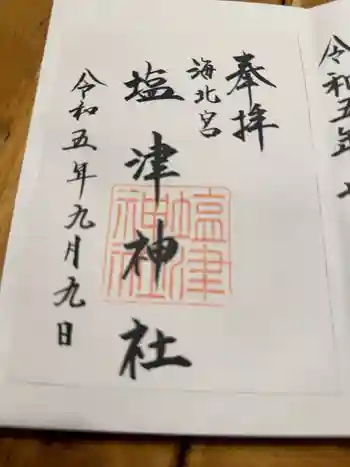 令和五年
奉拝
海北宮
塩津神社
塩津
神社
令和五年九月九日